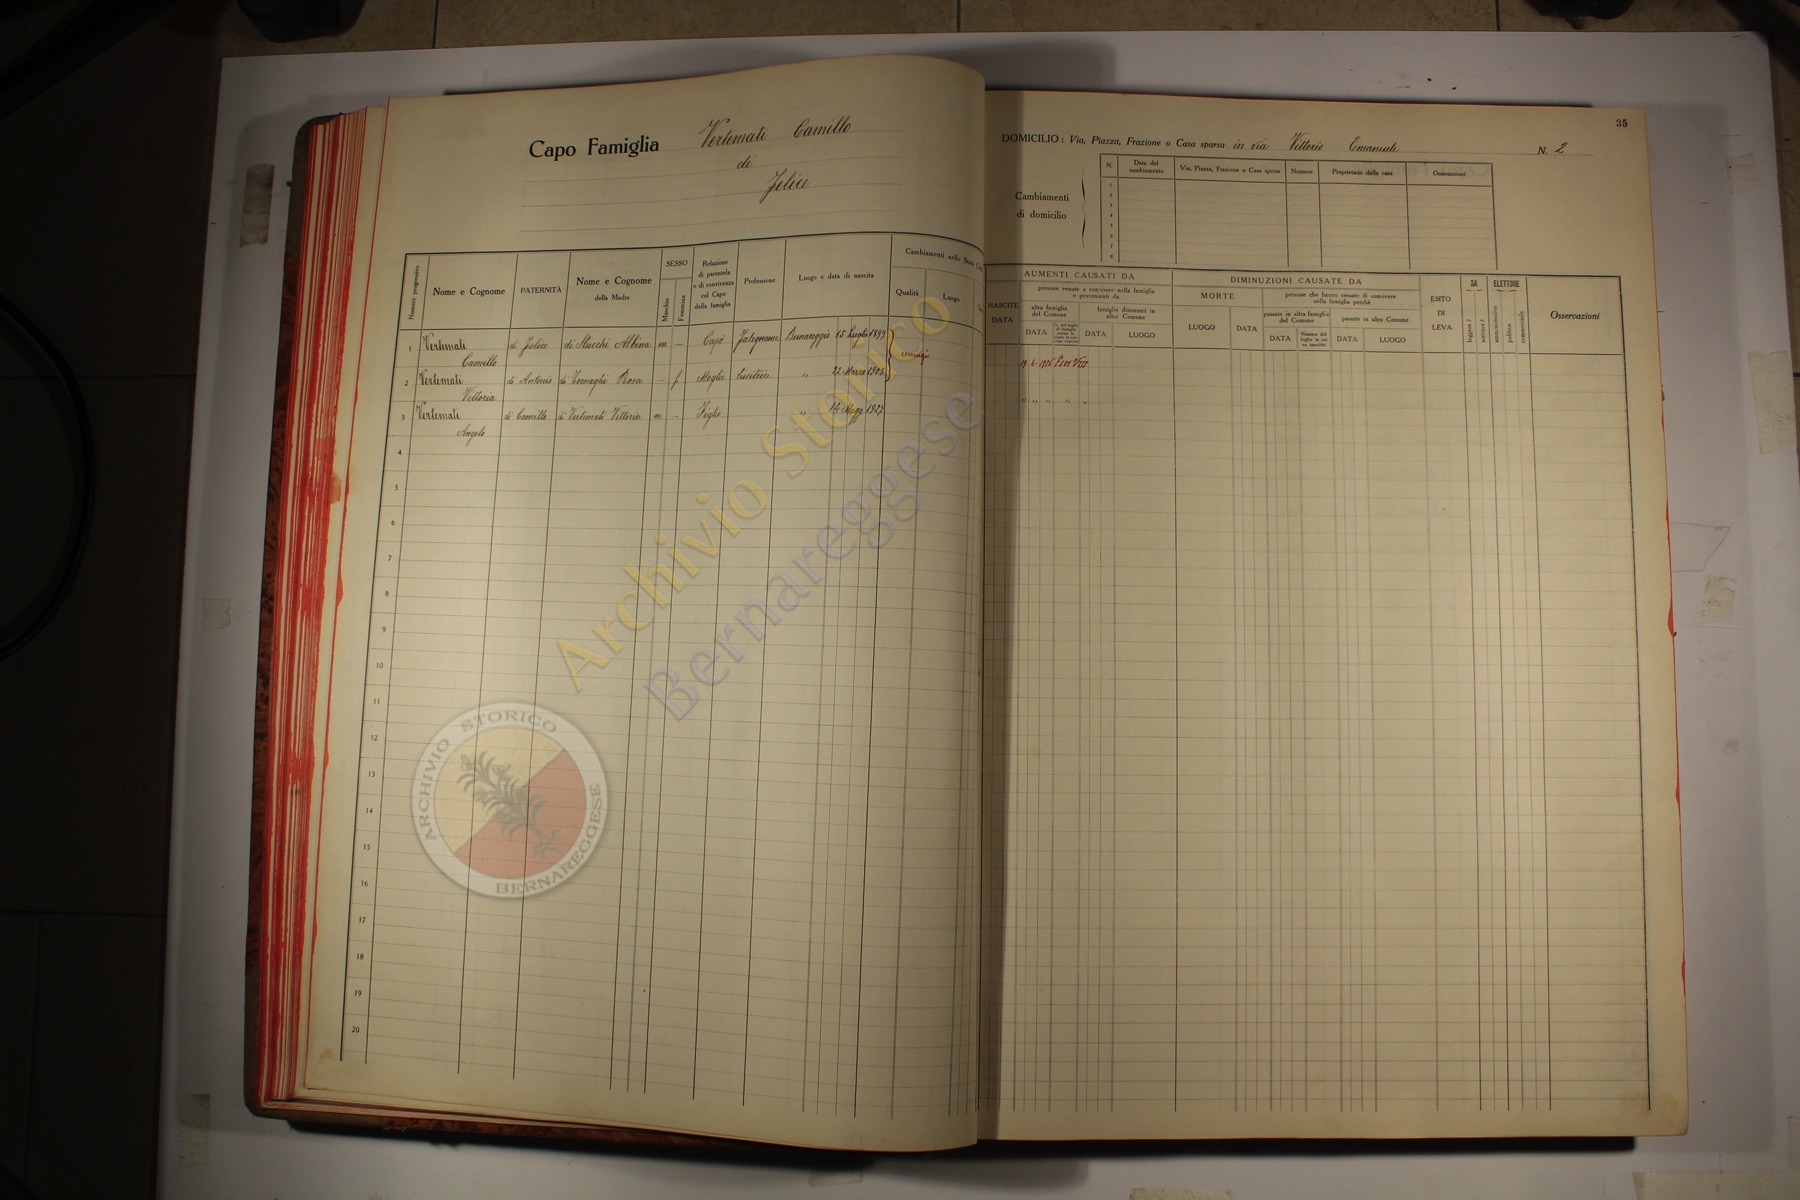 Capo Famiglia Vertemati Camillo
di
Felice
35
DOMICILIO: Via, Piazza, Frazione o Casa sparsa in via Vittorio Emanuele N. 2
Cambiamenti
di domicilio
N. Data del cambiamento Via, Piazza, Frazione o Casa sparsa Numero Proprietario della casa Osservazioni
1
2
3
4
5
6
7
8
Numero progressivo
Nome e Cognome
PATERNITÀ
Nome e Cognome
della Madre
SESSO
Maschio
Femmina
Relazione
di parentela
o di convivenza
col Capo
della famiglia
Professione
Luogo e data di nascita
Cambiamenti nello Stato
Qualità
Luogo
AUMENTI CAUSATI DA
NASCITE
DATA
persone venute a convivere nella famiglia
e provenienti da
altra famiglia
del Comune
famiglie dimoranti in
altro Comune
DATA
DATA
LUOGO
DIMINUZIONI CAUSATE DA
MORTE
LUOGO
DATA
persone che hanno cessato di convivere
nella famiglia perchè
passate in altra famiglia
del Comune
passate in altro Comune
DATA
Numero del
foglio in cui
va inscritto
DATA
LUOGO
ESITO
DI
LEVA
SA
leggere?
scrivere?
ELETTORE
amministrativo
politico
commerciale
Osservazioni
1 Vertemati di Felice di Stucchi Albina m. — Capo Falegname Bernareggio 15 Luglio 1899
Camillo
coniugi
2 Vertemati di Antonio di Tornaghi Rosa — f. Moglie " 22 Marzo 1903
Vittoria
3 Vertemati di Camillo di Vertemati Vittoria m. — Figlio " 14 Magg 1927
Angelo
4
5
6
7
8
9
10
11
12
13
14
15
16
17
18
19
20
Archivio Storico
Bernareggese
ARCHIVIO STORICO
BERNAREGGESE